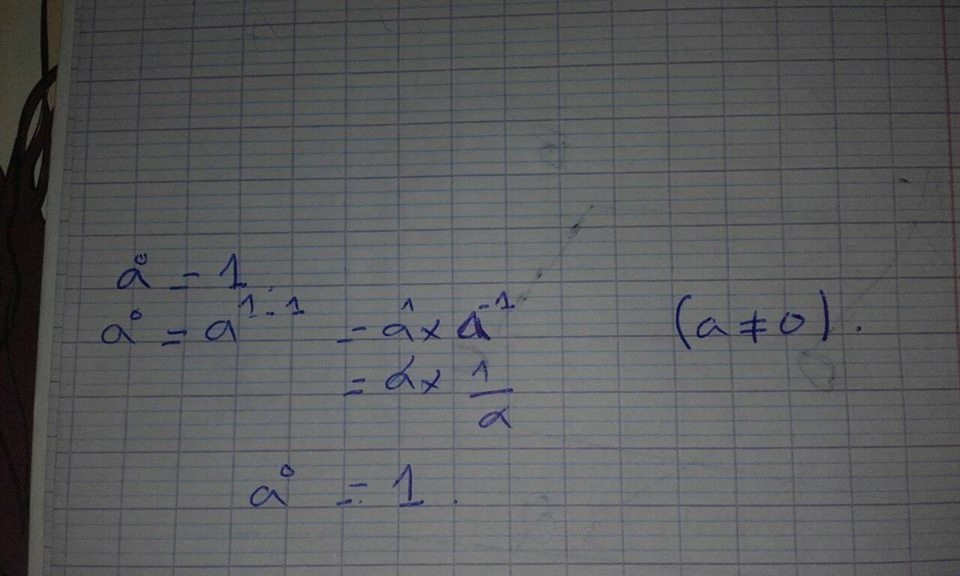 a⁰ = 1.
a⁰ = a¹⁻¹ = a¹ × a⁻¹ (a ≠ 0).
= a × 1/a
a⁰ = 1.